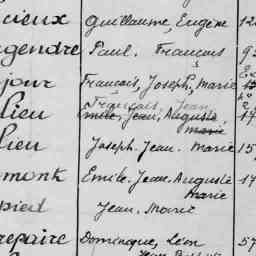 cieux Guillaume, Eugène 12
gendre Paul. François 9
jour Français, Joseph, Marie
Français. Jean
lieu Emile. Jean, Auguste 17
Marie
lieu Joseph. Jean. Marie 15
monk Emile. Jean. Auguste 17
Marie
pied Jean. Marie
repaire Dominique, Léon 57